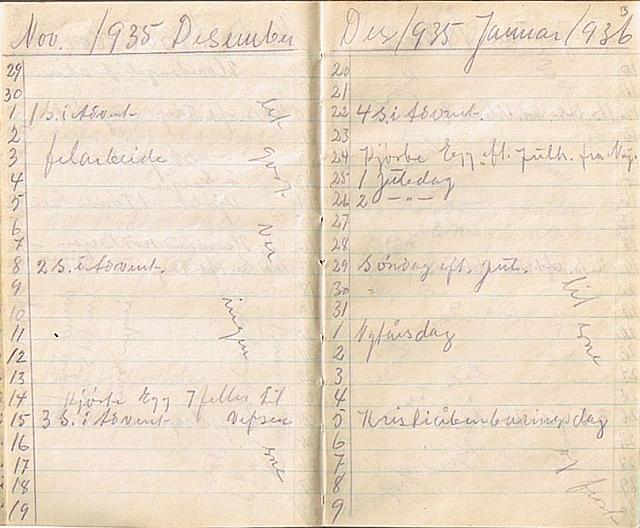 Nov. 1935 Desember
29
30
1 1 S. i Advent
2
3 felarbeide
4
5
6
7
8 2 S. i Advent.
9
10
11
12
13
14 kjørte Egg 7 feller til
15 3 S. i Advent Vefsen
16
17
18
19
let
godt
Vær
ingen
sne
Des 1935 Januar 1936
3
20
21
22 4 S. i Advent.
23
24 kjørte Egg eft. Julh. fra
25 1 Juledag
26 2 -"-
27
28
29 Søndag eft. Jul.
30
31
1 Nyttårsdag
2
3
4
5 Kristiåbenbaringsdag
6
7
8
9
lit
sne
og frost